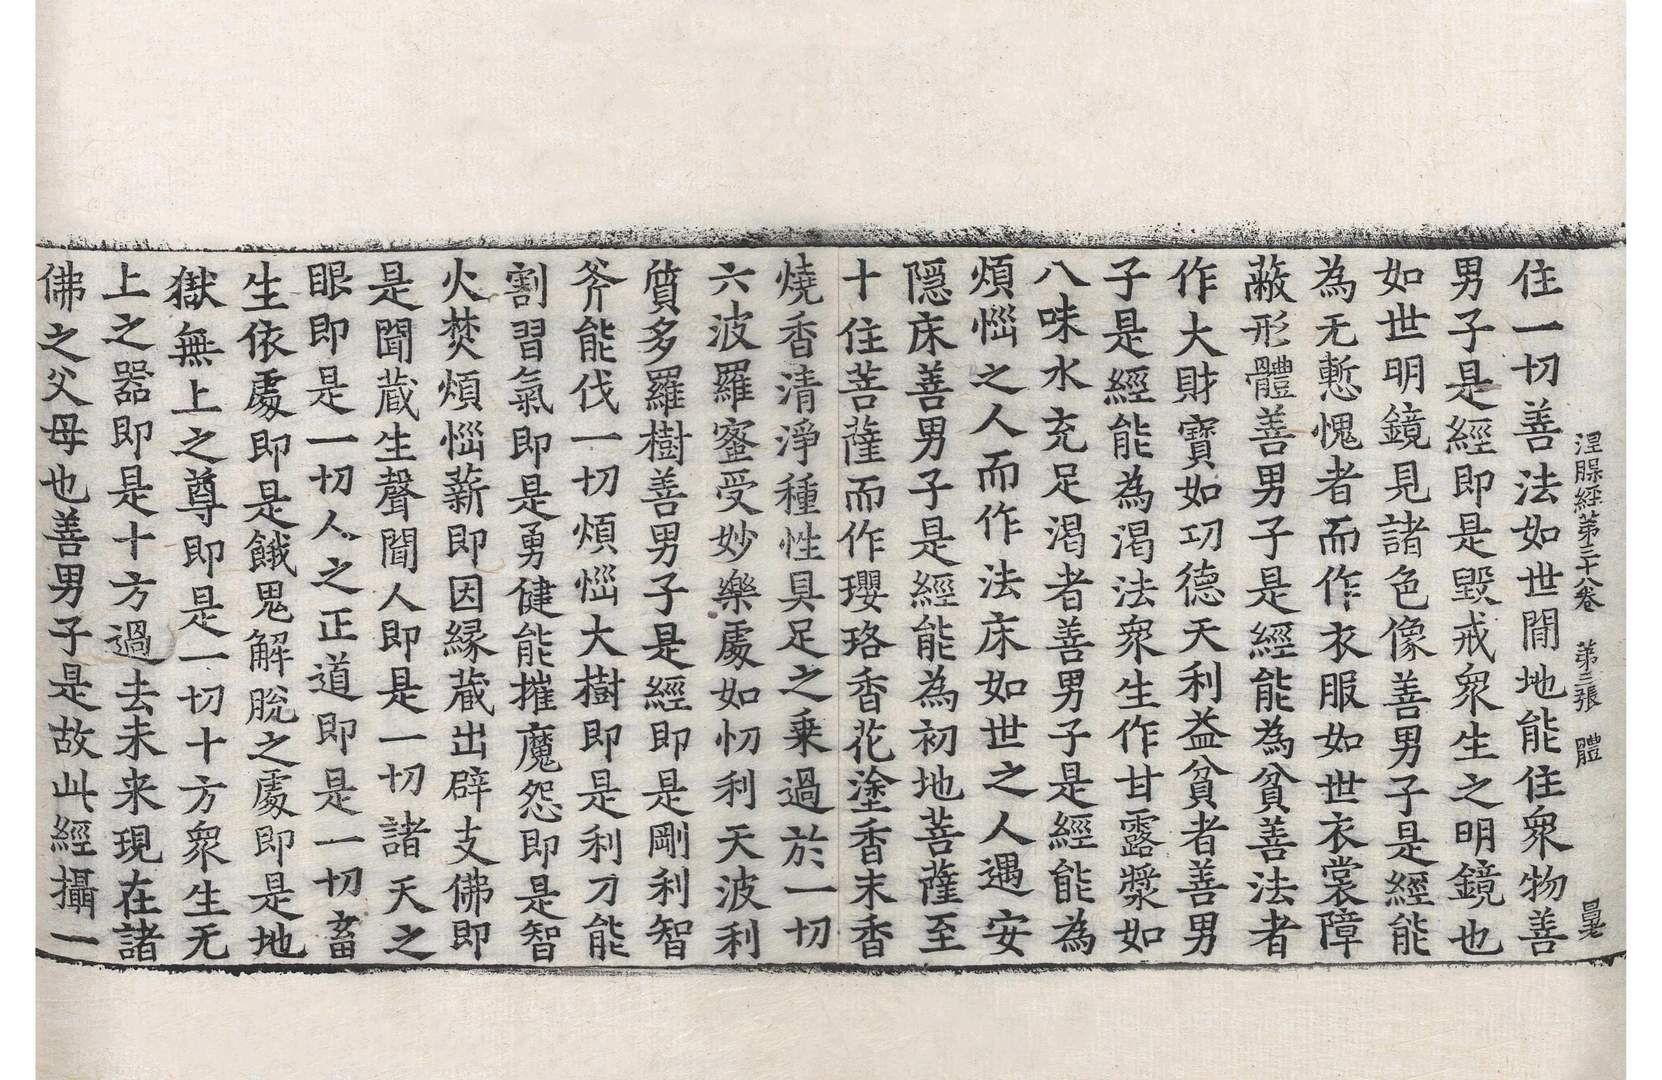 涅槃經第三十八卷 第三張 體
住一切善法如世間地能住衆物善
男子是經即是毀戒衆生之明鏡也
如世明鏡見諸色像善男子是經能
為无慙愧者而作衣服如世衣裳障
蔽形體善男子是經能為貧善法者
作大財寶如功德天利益貧者善男
子是經能為渴法衆生作甘露漿如
八味水充足渴者善男子是經能為
煩惱之人而作法床如世之人遇安
隱床善男子是經能為初地菩薩至
十住菩薩而作瓔珞香花塗香末香
燒香清淨種性具足之乗過於一切
六波羅蜜受妙樂處如忉利天波利
質多羅樹善男子是經即是剛利智
斧能伐一切煩惱大樹即是利刀能
割習氣即是勇健能摧魔怨即是智
火焚煩惱薪即因縁藏出辟支佛即
是聞藏生聲聞人即是一切諸天之
眼即是一切人之正道即是一切畜
生依處即是餓鬼解脫之處即是地
獄無上之尊即是一切十方衆生无
上之器即是十方過去未来現在諸
佛之父母也善男子是故此經攝一